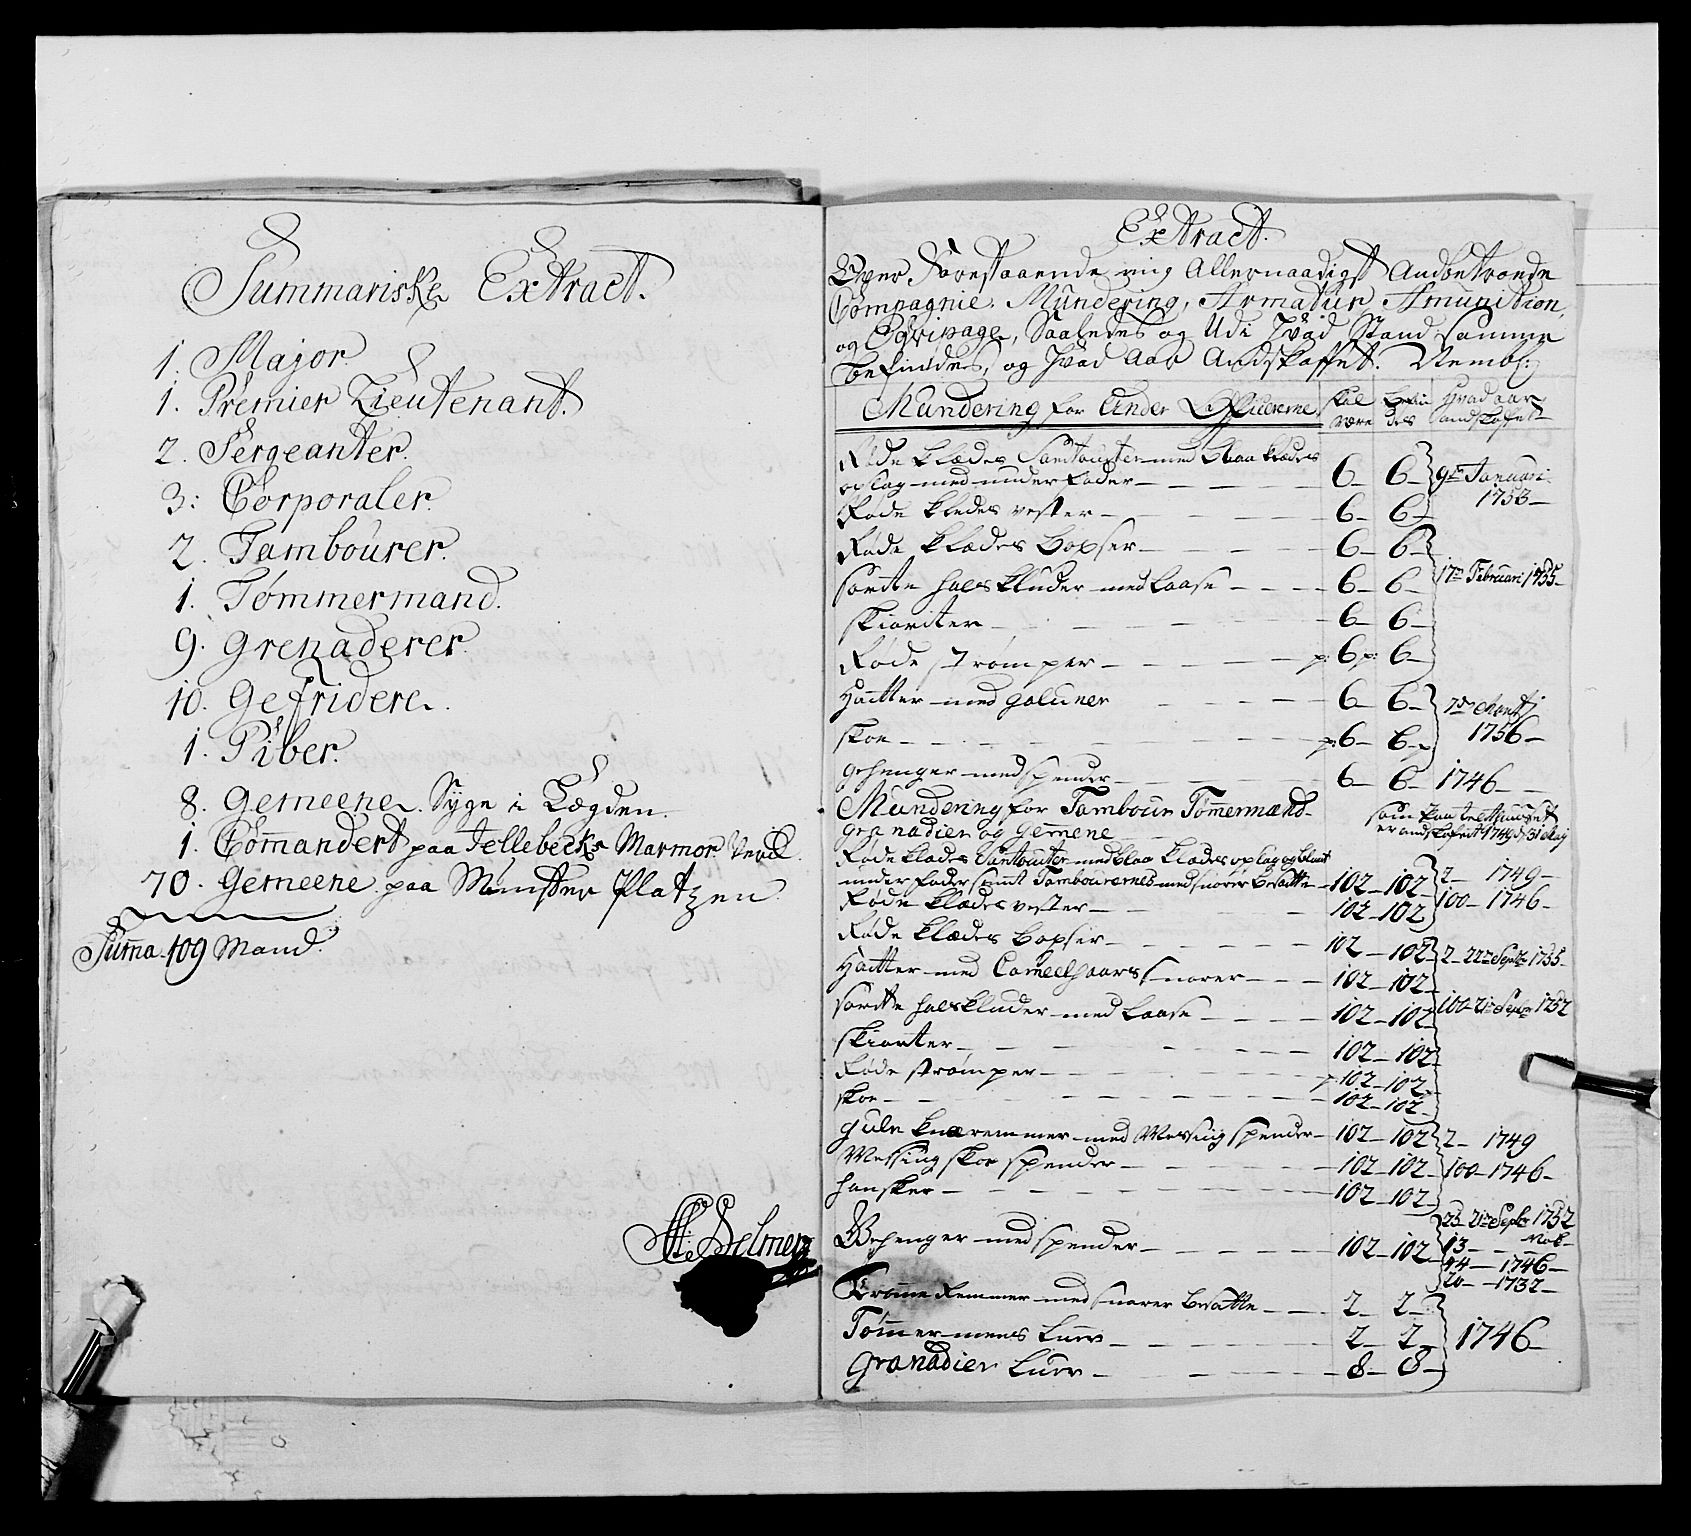 Summariske Extract.
1. Major.
1. Premier Lieutenant.
2. Sergeanter.
3: Corporaler.
2. Tambourer.
1. Tømmermand.
9. Grenaderer.
10. Gefridere.
1. Piber.
8. Gemeene. Syge i Lægden.
1. Com̄andert paa Jellebecks Marmor Verck.
70. Gemeene paa Mønster Platzen.
Sum̄a. 109 Mand.
Selmer
Extract.
Over Forestaaende mig Allernaadigst Andbetroede
Compagnie, Mundering, Armatur Amunition,
og Eqvipage, Saaledes og Udi Hvad Stand samme
befindes, og Hvad Aar Andskaffet. Nembl:
Mundering for Under Officererne
skal være
befindes
Hvad aar andskaffet
Røde klædes Surtouter med blaa klædes
opslag med under foder — 6 — 6 — 9de Januari
1753 —
Røde kledes vester — 6 — 6 —
Røde klædes boxser — 6 — 6 —
sorte halskluder med laase — 6 — 6 — 17de Februari 1755 —
skiorter — 6 — 6 —
Røde strømper — p: 6 p: 6 —
Hatter med galuner — 6 — 6 — 7de Martj
1756 —
skoe — p: 6 — 6 p
gehenger med spender — 6 — 6 — 1746 —
Mundering for Tambour Tømmermænd
granadier og gemene
som paa telthuuset
er andskafet 1749 d. 31 Maj
Røde klædes Surtouter med blaa klædes opslag og blaat
under foder samt Tambourernes med snorer besatte — 102 — 102 — 2 — 1749 —
Røde klædes vester — 102 — 102 100 — 1746 —
Røde klædes boxser — 102 — 102 — 2 — 22de Septr 1755 —
Hatter med Cameelhaars snorer — 102 — 102 —
sorte halskluder med laase — 102 — 102 — 100 — 21de Septr 1752
skiorter — 102 — 102 —
Røde strømper — p. 102 — 102 —
skoe — 102 — 102 —
gule knæremmer med Messing spender — 102 — 102 2 — 1749
Messing skoe spender — 102 — 102 — 100 — 1746 —
hansker — 102 — 102 —
25 — 21de Septr 1752
Gehenger med spender — 102 — 102 — 13 —
44 — 1746 —
20 — 1732 —
Trom̄e Remmer med snorer besatte — 2 — 2 —
Tømmermens luer — 2 — 2 — 1746 —
Granadier luer — 8 — 8 —